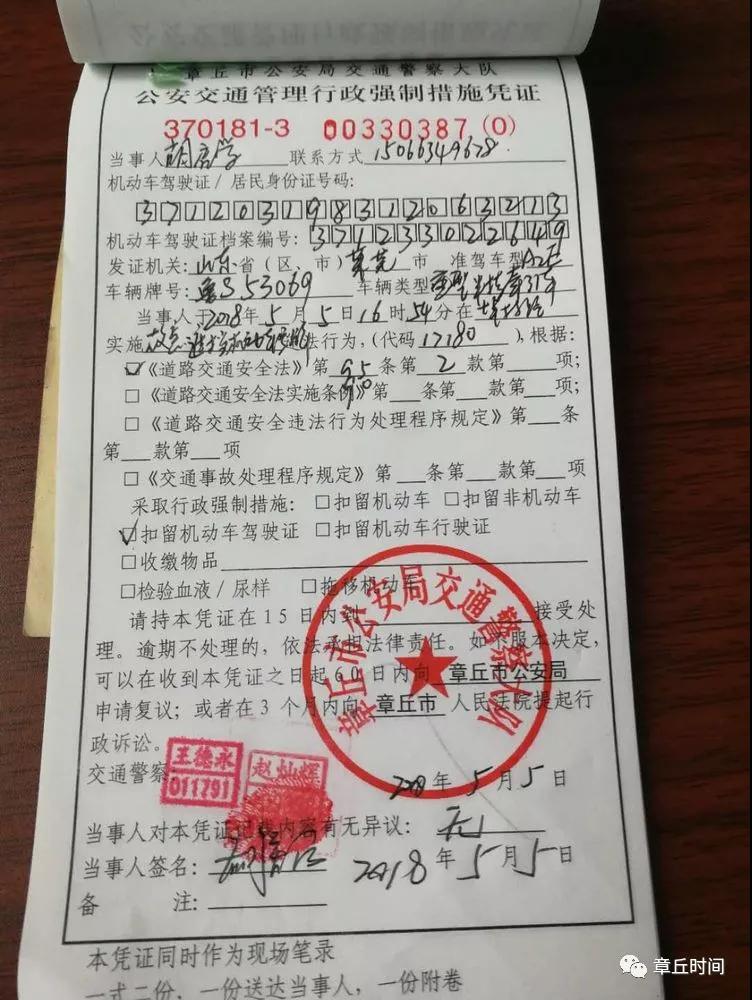 章丘市公安局交通警察大队
公安交通管理行政强制措施凭证
370181-3 00330387 (0)
当事人 胡 学 联系方式 15066349678
机动车驾驶证/居民身份证号码:
371203198312063213
机动车驾驶证档案编号: 371233022649
发证机关: 山东 省(区、市) 莱芜 市 准驾车型 A2E
车辆牌号: 鲁S53069 车辆类型 重型半挂牵引车
当事人于 2018 年 5 月 5 日 16 时 54 分在
实施 故意遮挡机动车号牌 违法行为,(代码 17180 ),根据:
☑《道路交通安全法》第 95 条第 2 款第 项;
□《道路交通安全法实施条例》第 90 条第 款第 项;
□《道路交通安全违法行为处理程序规定》第 条
第 款第 项
□《交通事故处理程序规定》第 条第 款第 项
采取行政强制措施: □扣留机动车 □扣留非机动车
☑扣留机动车驾驶证 □扣留机动车行驶证
□收缴物品
□检验血液/尿样 □拖移机动车
请持本凭证在15日内到 接受处
理。逾期不处理的,依法承担法律责任。如不服本决定,
可以在收到本凭证之日起60日内向 章丘市公安局
申请复议;或者在3个月内向 章丘市 人民法院提起行
政诉讼。
章丘市公安局交通警察大队
交通警察: 王德永 011791 赵灿辉
2018 年 5 月 5 日
当事人对本凭证记载内容有无异议: 无
当事人签名: 2018 年 5 月 5 日
备 注:
本凭证同时作为现场笔录
一式二份,一份送达当事人,一份附卷
章丘时间